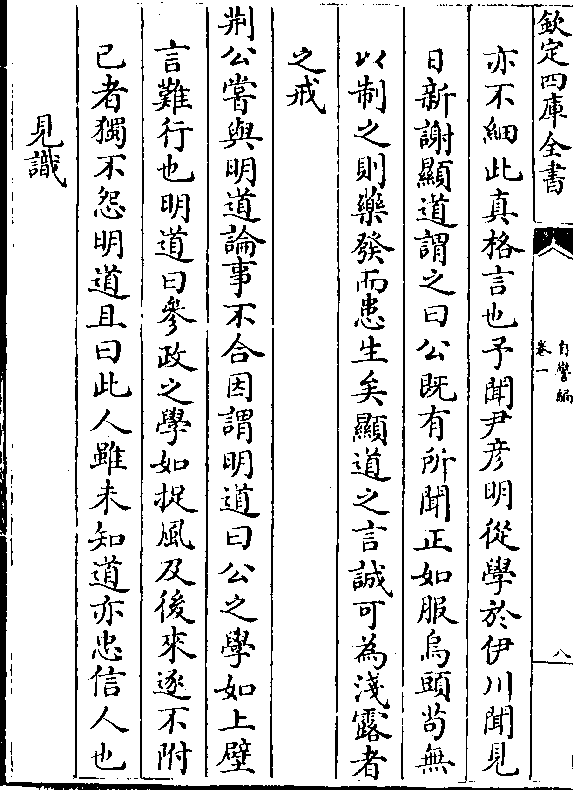 欽定四庫全書
自警編
卷一
八
亦不細此真格言也予聞尹彥明從學於伊川聞見
日新謝顯道謂之曰公既有所聞正如服烏頭茍無
以制之則藥發而患生矣顯道之言誠可為淺露者
之戒
荆公嘗與明道論事不合因謂明道曰公之學如上壁
言難行也明道曰參政之學如捉風及後來逐不附
已者獨不怨明道且曰此人雖未知道亦忠信人也
見識